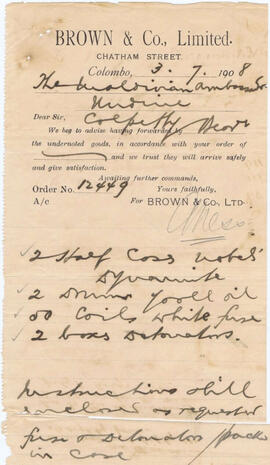 BROWN & Co., Limited.
CHATHAM STREET.
Colombo, 3. 7. 1908
The Maldivian Ambassador
Undine
Dear Sir, Colpetty
We beg to advise having forwarded by
the undernoted goods, in accordance with your order of
and we trust they will arrive safely
and give satisfaction.
Awaiting further commands,
Order No. 12449 Yours faithfully,
A/c For BROWN & Co., LTD
2 Half Cases Nobels
Dynamite
2 Drums oil
50 Coils White fuse
2 boxes Detonators.
Instructions still
enclosed as requested
fuse & Detonators packed
in case